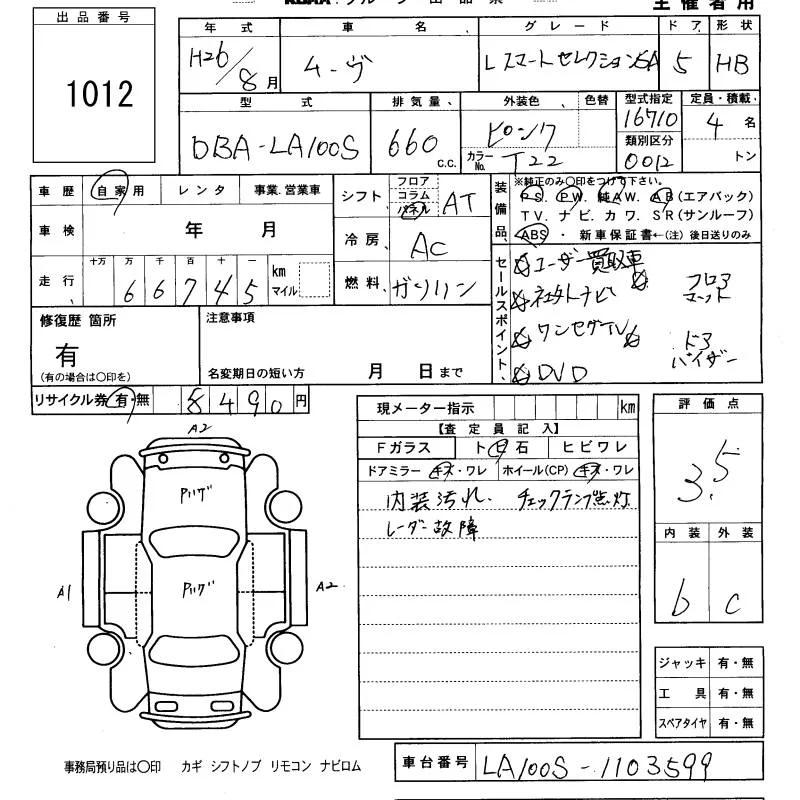 出品番号
1012
年式 車名 グレード ドア 形状
H26/8月 ムーヴ Lスマートセレクション SA 5 HB
型式 排気量 外装色 色替 型式指定 定員・積載
DBA-LA100S 660 C.C. ピンク 16710 4名
カラーNo. T22 類別区分 0012 トン
車歴 自家用 レンタ 事業.営業車
車検 年 月
走行 十万 万 千 百 十 一 km マイル
66745
シフト フロア コラム パネル AT
冷房 AC
燃料 ガソリン
装備品
※純正のみ〇印をつけて下さい。
PS. PW. 純AW. AB(エアバック)
TV. ナビ. カワ. SR(サンルーフ)
ABS ・ 新車保証書←(注) 後日送りのみ
セールスポイント
☆ユーザー買取車
☆社外ナビ ☆フロアマット
☆ワンセグTV ☆ドアバイザー
☆DVD
修復歴 箇所
有
(有の場合は〇印を)
注意事項
名変期日の短い方 月 日まで
リサイクル券 有・無 8490円
現メーター指示 km
【査定員記入】
Fガラス ト日石 ヒビワレ
ドアミラー キズ・ワレ ホイール(CP) キズ・ワレ
内装汚れ. チェックランプ点灯
レーダー故障
評価点
3.5
内装 外装
b c
A2
A1
A2
ジャッキ 有・無
工具 有・無
スペアタイヤ 有・無
事務局預り品は〇印 カギ シフトノブ リモコン ナビロム
車台番号 LA100S-1103599